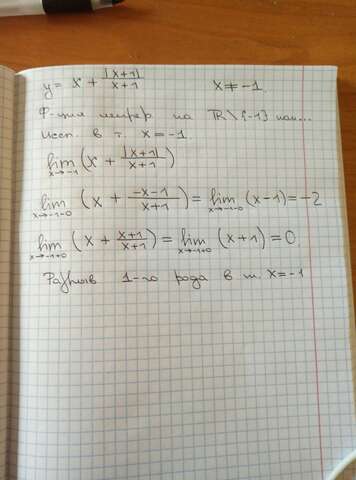 y = x + |x+1|/(x+1)   x ≠ -1.
Ф-ция непрер на ℝ \ {-1} как...
Иссл. в т. x = -1.
lim x→-1 (x + |x+1|/(x+1))
lim x→-1-0 (x + (-x-1)/(x+1)) = lim x→-1-0 (x-1) = -2
lim x→-1+0 (x + (x+1)/(x+1)) = lim x→-1+0 (x+1) = 0
Разрыв 1-го рода в т. x = -1